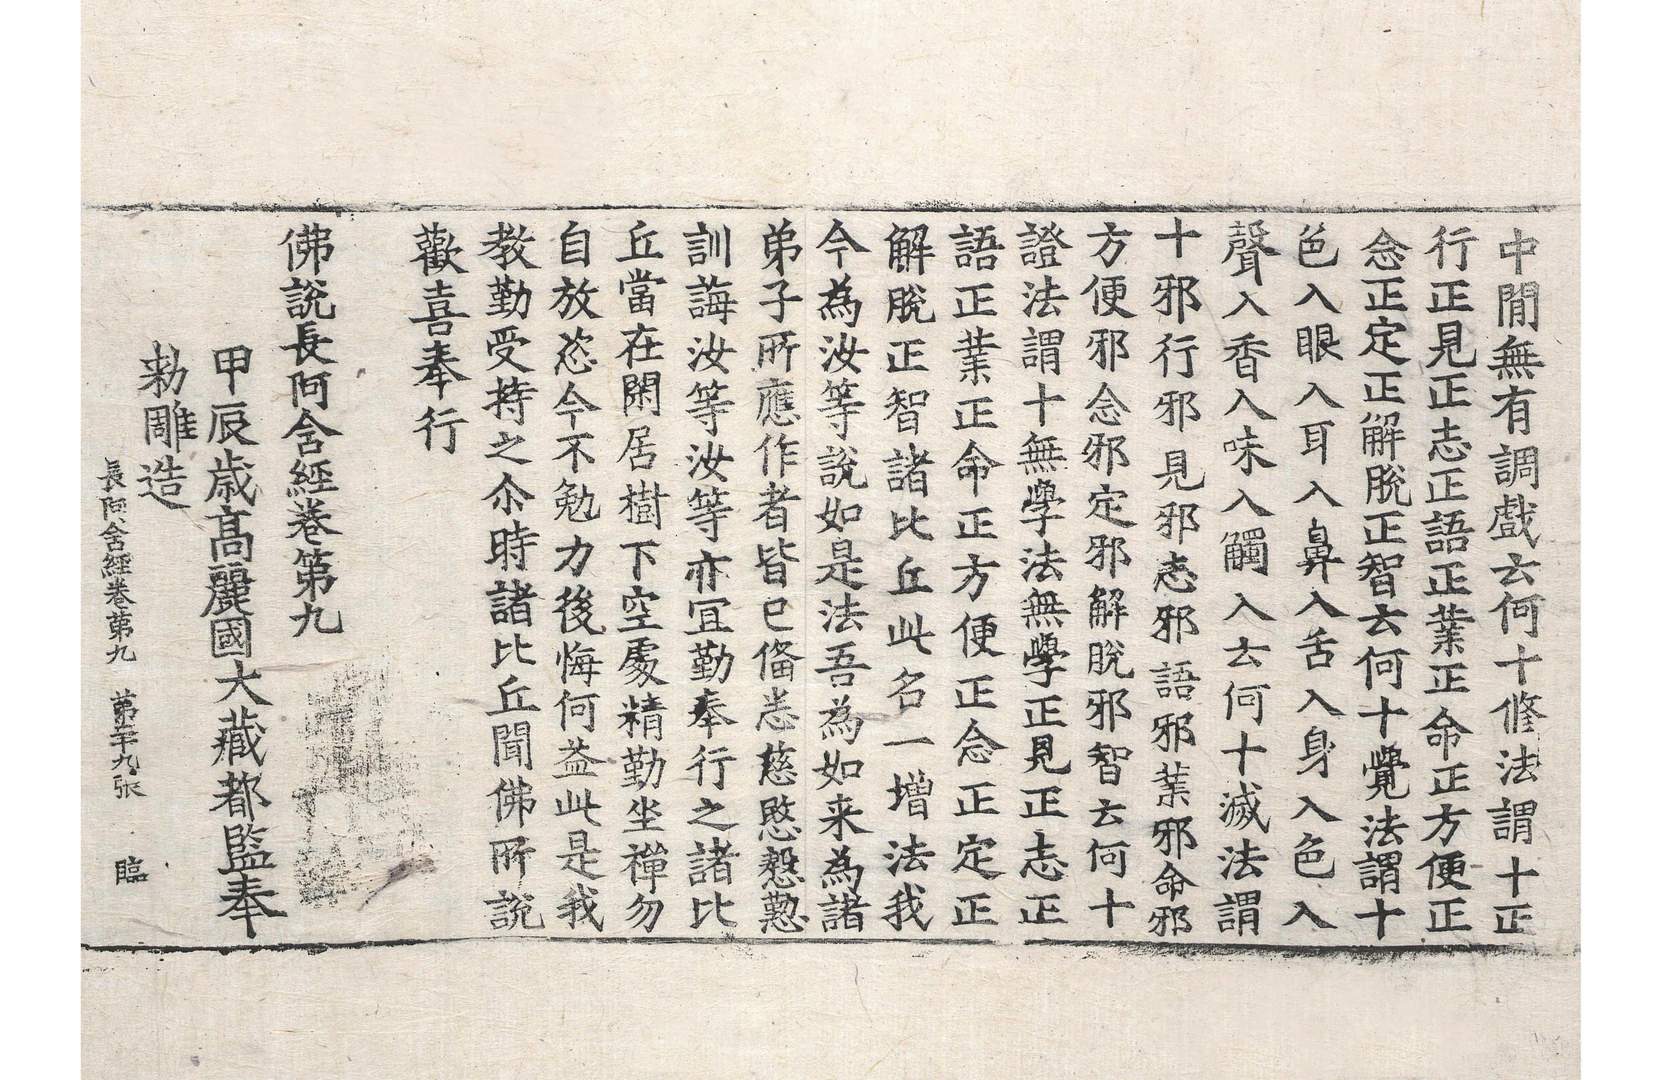 中閒無有調戲云何十修法謂十正
行正見正志正語正業正命正方便正
念正定正解脫正智云何十覺法謂十
色入眼入耳入鼻入舌入身入色入
聲入香入味入觸入云何十滅法謂
十邪行邪見邪志邪語邪業邪命邪
方便邪念邪定邪解脫邪智云何十
證法謂十無學法無學正見正志正
語正業正命正方便正念正定正
解脫正智諸比丘此名一增法我
今為汝等說如是法吾為如来為諸
弟子所應作者皆已俻悉慈愍慇懃
訓誨汝等汝等亦宜勤奉行之諸比
丘當在閑居樹下空處精勤坐禪勿
自放恣今不勉力後悔何益此是我
教勤受持之尒時諸比丘聞佛所說
歡喜奉行
佛說長阿含經卷第九
甲辰歲高麗國大藏都監奉
勑雕造
長阿含經卷第九 第二十九張 臨